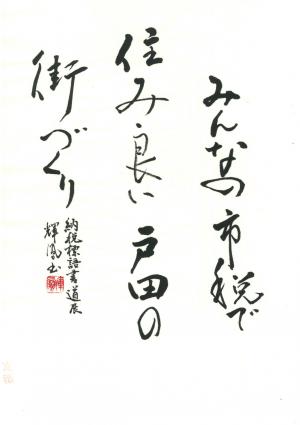 みんなの市税で
住み良い戸田の
街づくり
納税標語書道展
輝風書